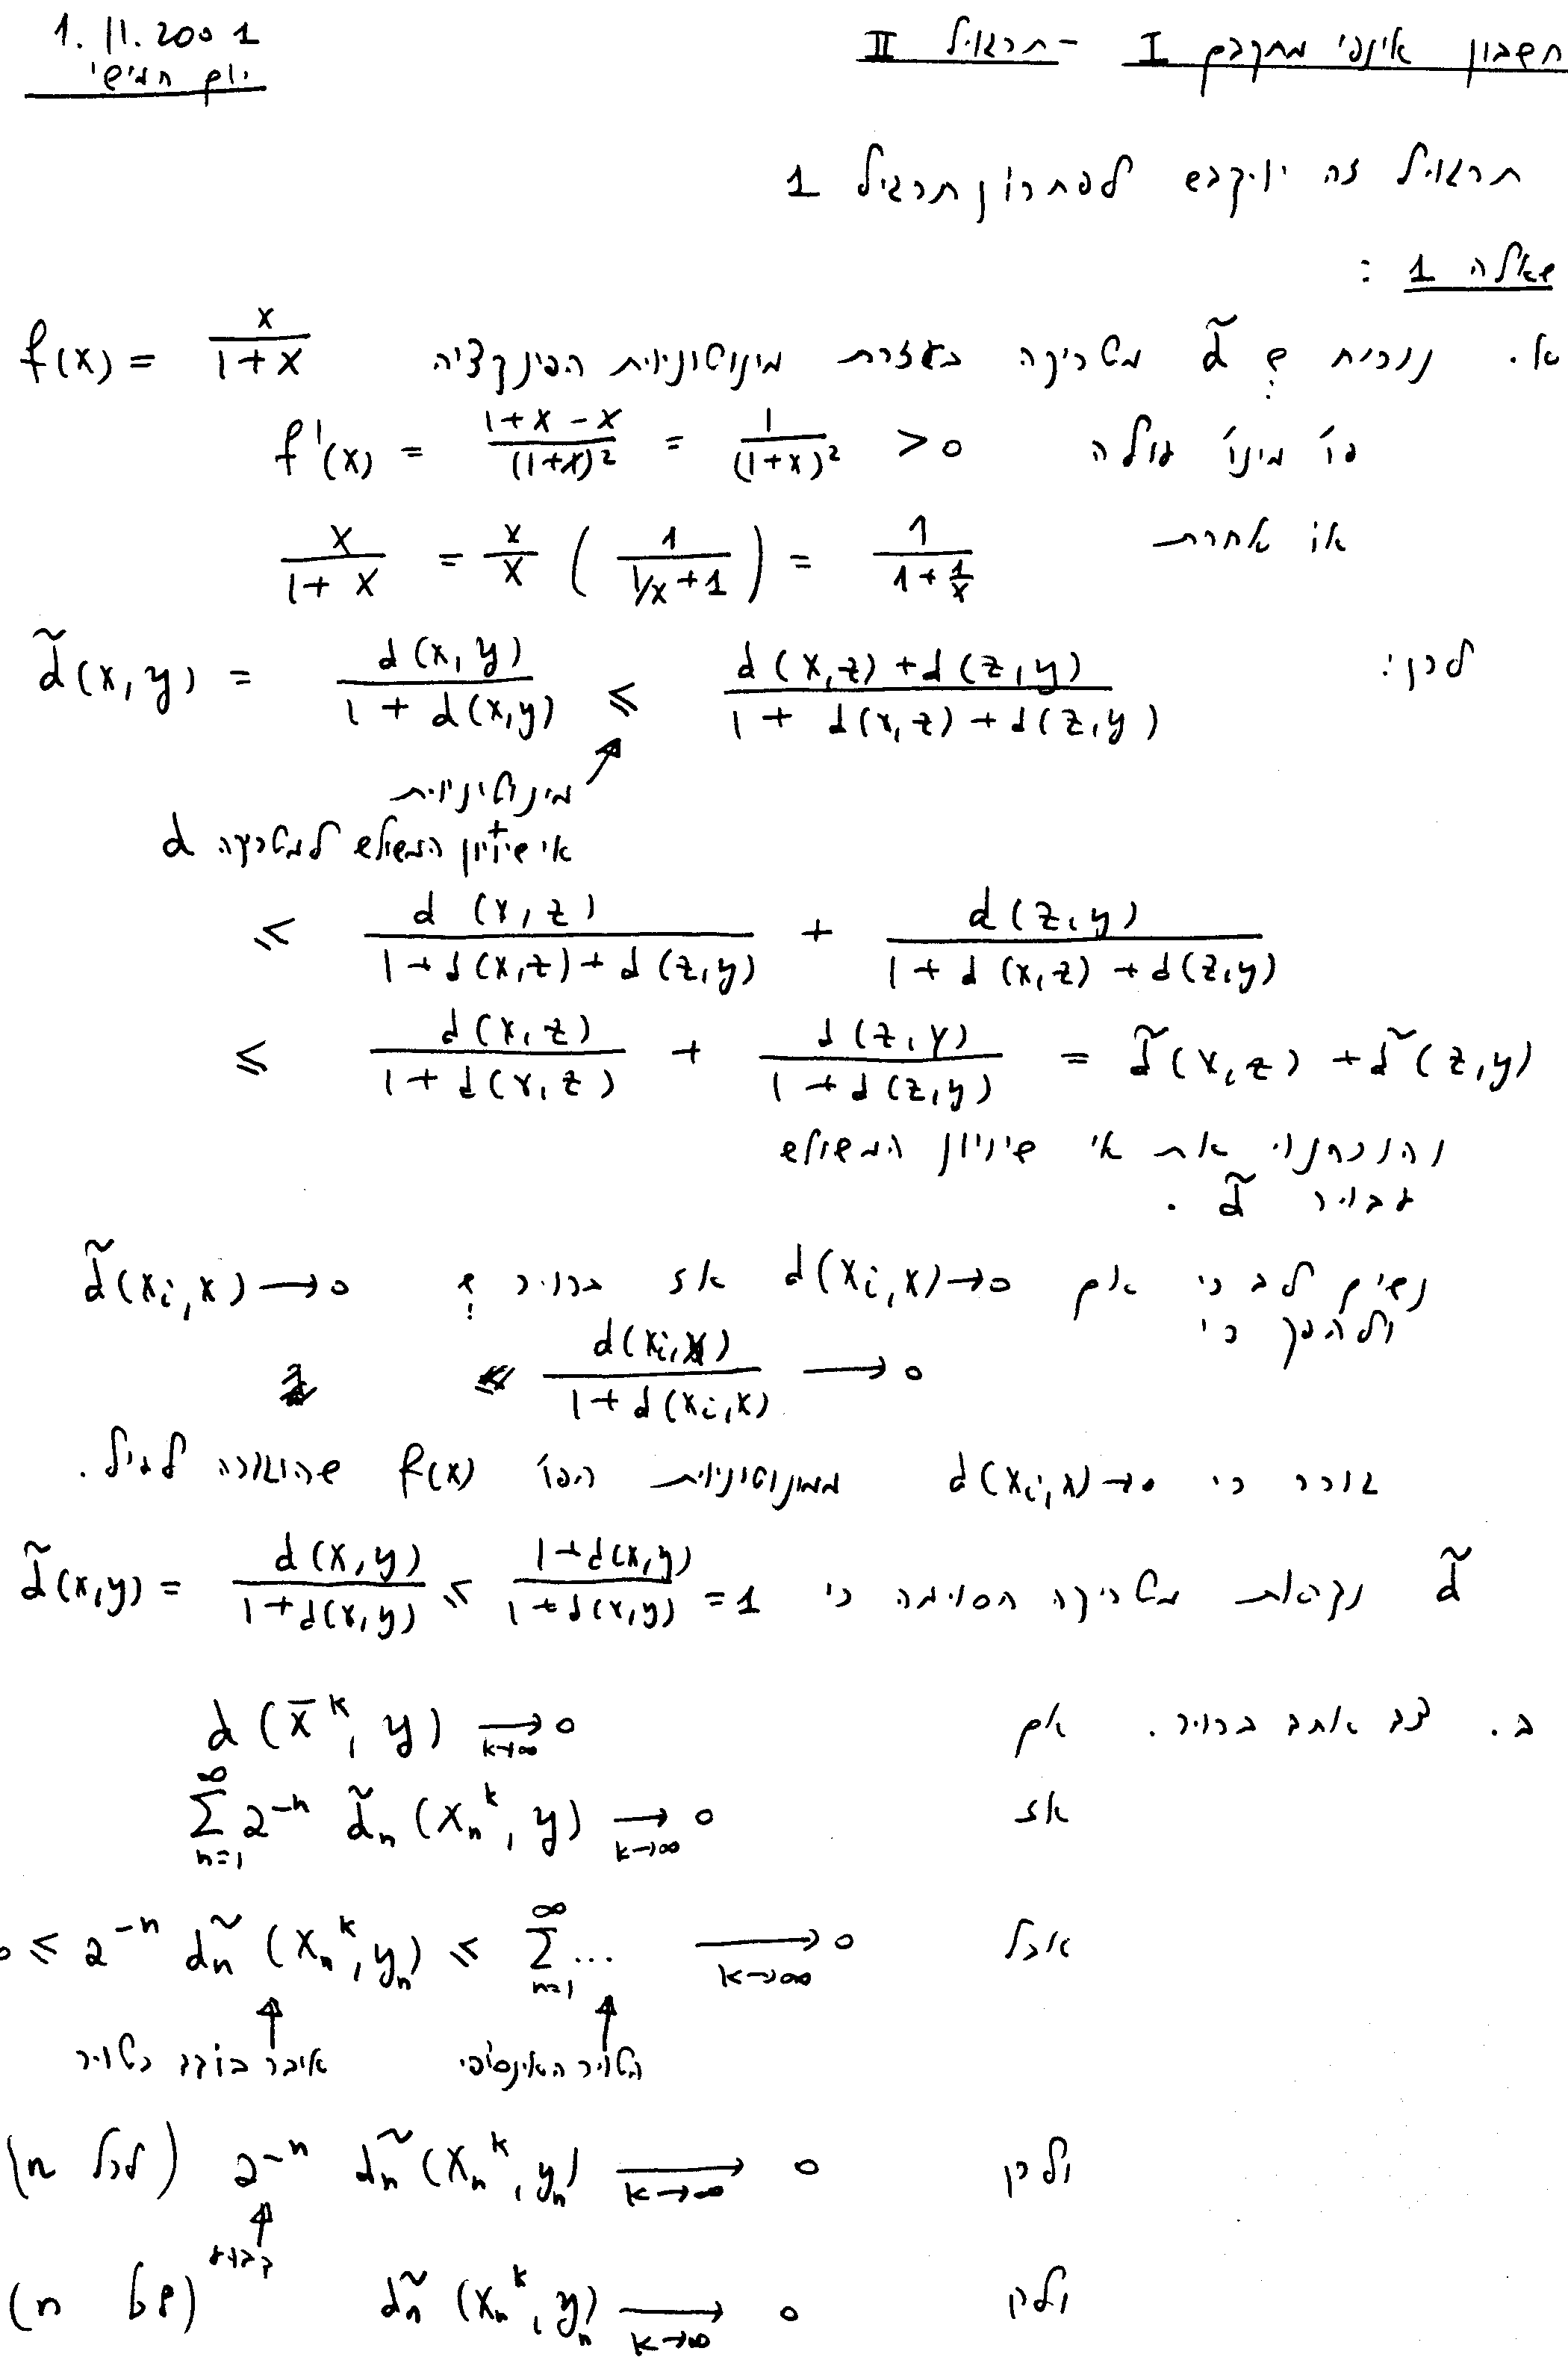 חשבון אינפי מתקדם I - תרגיל II
1.11.2001
יום חמישי
תרגיל זה יוקדש לפתרון תרגיל 1
שאלה 1 :
א. נוכיח ש: d̃ מטריקה בעזרת מונוטוניות הפונקציה f(x) = x/(1+x)
פו' מונו' עולה f'(x) = (1+x-x)/(1+x)² = 1/(1+x)² > 0
או אחרת x/(1+x) = x/x (1/(1/x+1)) = 1/(1+1/x)
לכן: d̃(x,y) = d(x,y)/(1+d(x,y)) ≤ (d(x,z)+d(z,y))/(1+d(x,z)+d(z,y))
מונוטוניות
+
אי שיוויון המשולש למטריקה d
≤ d(x,z)/(1+d(x,z)+d(z,y)) + d(z,y)/(1+d(x,z)+d(z,y))
≤ d(x,z)/(1+d(x,z)) + d(z,y)/(1+d(z,y)) = d̃(x,z) + d̃(z,y)
והוכחנו את אי שיוויון המשולש
עבור d̃ .
נשים לב כי אם d(xᵢ,x)→0 אז ברור ש: d̃(xᵢ,x)→0
ולהפך כי
d(xᵢ,x)/(1+d(xᵢ,x)) → 0
גורר כי d(xᵢ,x)→0 ממונוטוניות הפו' f(x) שהוגדרה לעיל.
d̃ נקראת מטריקה חסומה כי d̃(x,y) = d(x,y)/(1+d(x,y)) ≤ (1+d(x,y))/(1+d(x,y)) = 1
ב. צד אחד ברור. אם d(x̄ᵏ, y) →(k→∞) 0
אז Σ(n=1,∞) 2⁻ⁿ d̃ₙ(xₙᵏ, y) →(k→∞) 0
אבל 0 ≤ 2⁻ⁿ d̃ₙ(xₙᵏ, yₙ) ≤ Σ(n=1,∞) ... →(k→∞) 0
הטור האינסופי איבר בודד בטור
ולכן 2⁻ⁿ d̃ₙ(xₙᵏ, yₙ) →(k→∞) 0 (לכל n)
קבוע
ולכן d̃ₙ(xₙᵏ, yₙ) →(k→∞) 0 (לכל n)